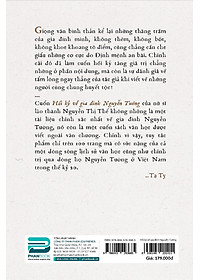 Giọng văn bình thản kể lại những thăng trầm
của gia đình mình, không thêm, không bớt,
không khoe khoang tô điểm, cũng chẳng cần che
giấu những cơ cực do Định mệnh an bài. Chính
cái đó đã làm cuốn hồi ký tăng giá trị chẳng
những ở phần nội dung, mà còn là sự đánh giá về
tấm lòng ngay thẳng của tác giả khi viết về những
người cùng chung huyết tộc!
Cuốn Hồi ký về gia đình Nguyễn Tường của nữ sĩ
lão thành Nguyễn Thị Thế không những là một
tài liệu chính xác nhất về gia đình Nguyễn
Tường, nó còn là một cuốn sách văn học được
viết ngoài văn chương. Chính vì vậy, tuy tác
phẩm chỉ trên 100 trang mà có sức nặng của cả
một dòng sông lịch sử văn học cũng như chính
trị qua dòng họ Nguyễn Tường ở Việt Nam
trong thế kỷ 20.
—Tạ Tỵ
PHANBOOK
Giá: 579.000đ